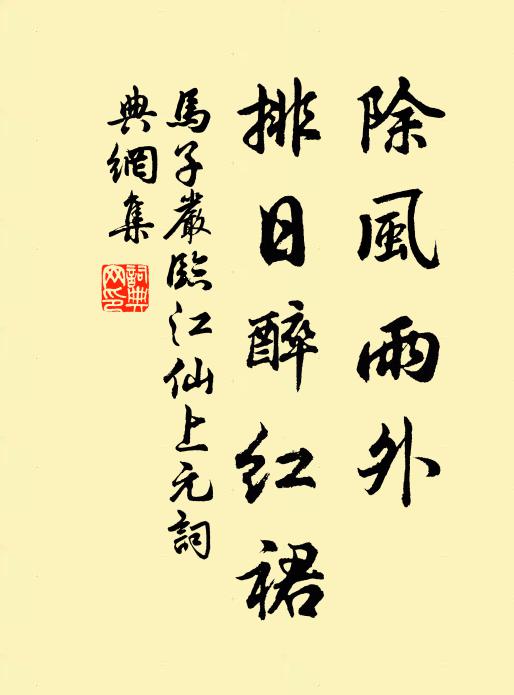 除風雨外
排日醉紅裙
馬子嚴臨江仙上元詞
典網集
詞典網印